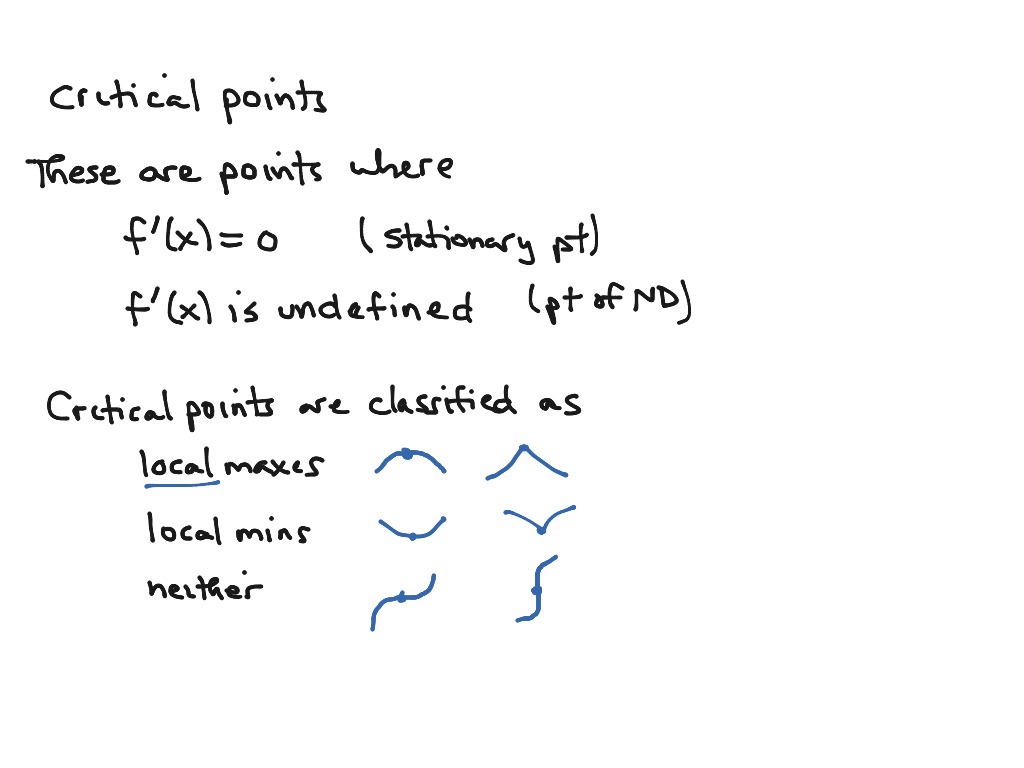 Critical points
These are points where
f'(x) = 0 (stationary pt)
f'(x) is undefined (pt of ND)
Critical points are classified as
local maxes
local mins
neither